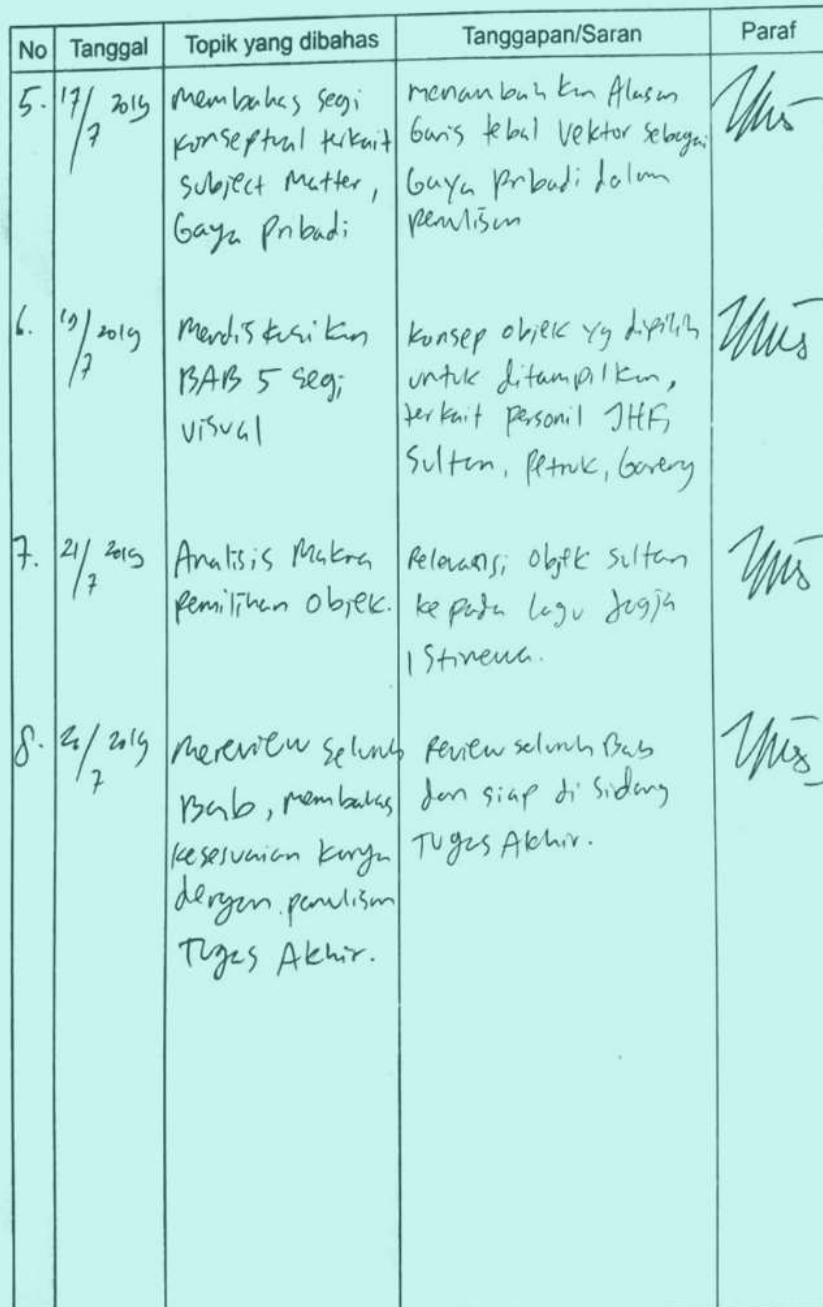 No Tanggal Topik yang dibahas Tanggapan/Saran Paraf
5. 17/7 2019
Membahas segi
konseptual terkait
subject Matter,
Gaya pribadi
menambahkan Alasan
Garis tebal Vektor sebagai
Gaya pribadi dalam
penulisan
6. 19/7 2019
Mendiskusikan
BAB 5 segi
visual
konsep objek yg dipilih
untuk ditampilkan,
terkait personil JHF,
Sultan, Petruk, Gareng
7. 21/7 2019
Analisis Makna
pemilihan objek.
Relevansi objek sultan
kepada lagu Jogja
Istimewa.
8. /7 2019
Mereview seluruh
Bab, membahas
kesesuaian karya
dengan penulisan
Tugas Akhir.
Review seluruh Bab
dan siap di Sidang
Tugas Akhir.